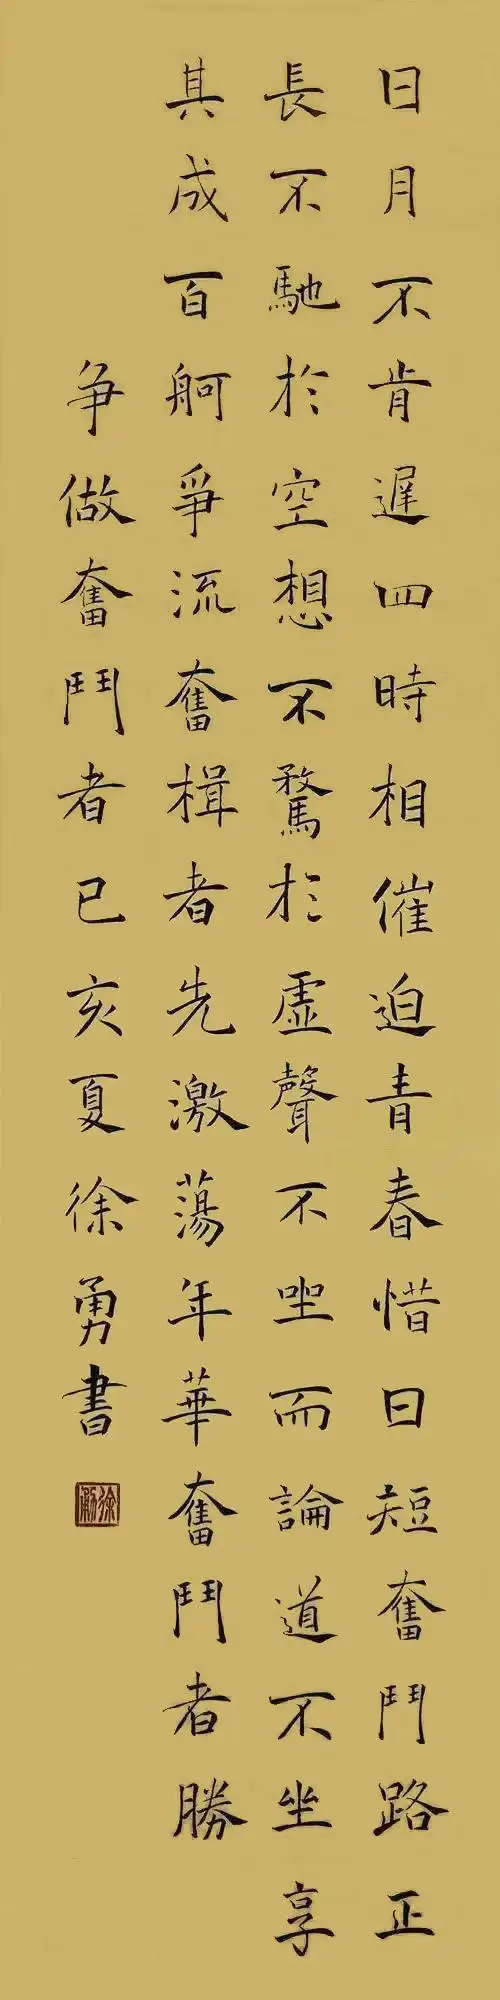 日月不肯遲四時相催迫青春惜日短奮鬥路正
長不馳於空想不騖於虛聲不坐而論道不坐享
其成百舸爭流奮楫者先激蕩年華奮鬥者勝
争做奮鬥者己亥夏徐勇書
徐勇